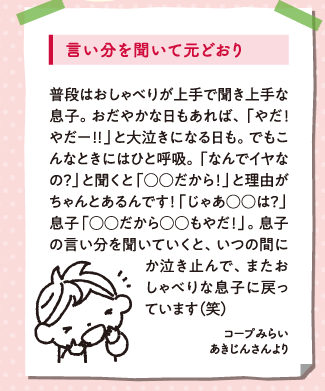 言い分を聞いて元どおり
普段はおしゃべりが上手で聞き上手な
息子。おだやかな日もあれば、「やだ!
やだー!!」と大泣きになる日も。でもこ
んなときにはひと呼吸。「なんでイヤな
の?」と聞くと「○○だから!」と理由が
ちゃんとあるんです!「じゃあ○○は?」
息子「○○だから○○もやだ!」。息子
の言い分を聞いていくと、いつの間に
か泣き止んで、またお
しゃべりな息子に戻っ
ています(笑)
コープみらい
あきじんさんより